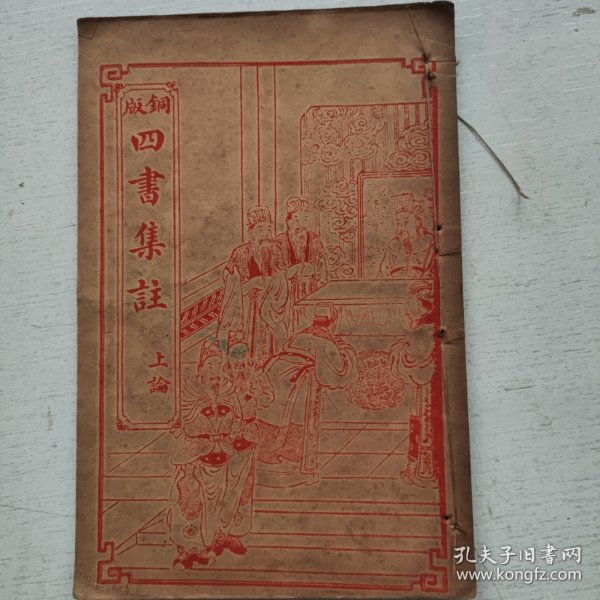 銅版
四書集註
上論
孔夫子旧书网
www.kongfz.com